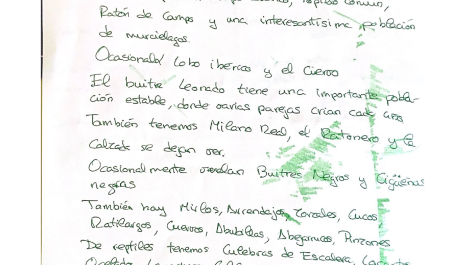 Ratón de Campo y una interesantísima población
de murcielagos.
Ocasional Lobo ibérico y el Ciervo
El buitre Leonado tiene una importante pobla-
ción estable, donde varias parejas crian cada año
También tenemos Milano Real, el Ratonero y la
Calzada se dejan ver.
Ocasionalmente Buitres Negros y Cigüeñas
negras
También hay Mirlos, Arrendajos, Zorzales, Cucos
Ratilargos, Cuervos, Abubillas, Abejarucos, Pinzones
De reptiles tenemos Culebras de Escalera,